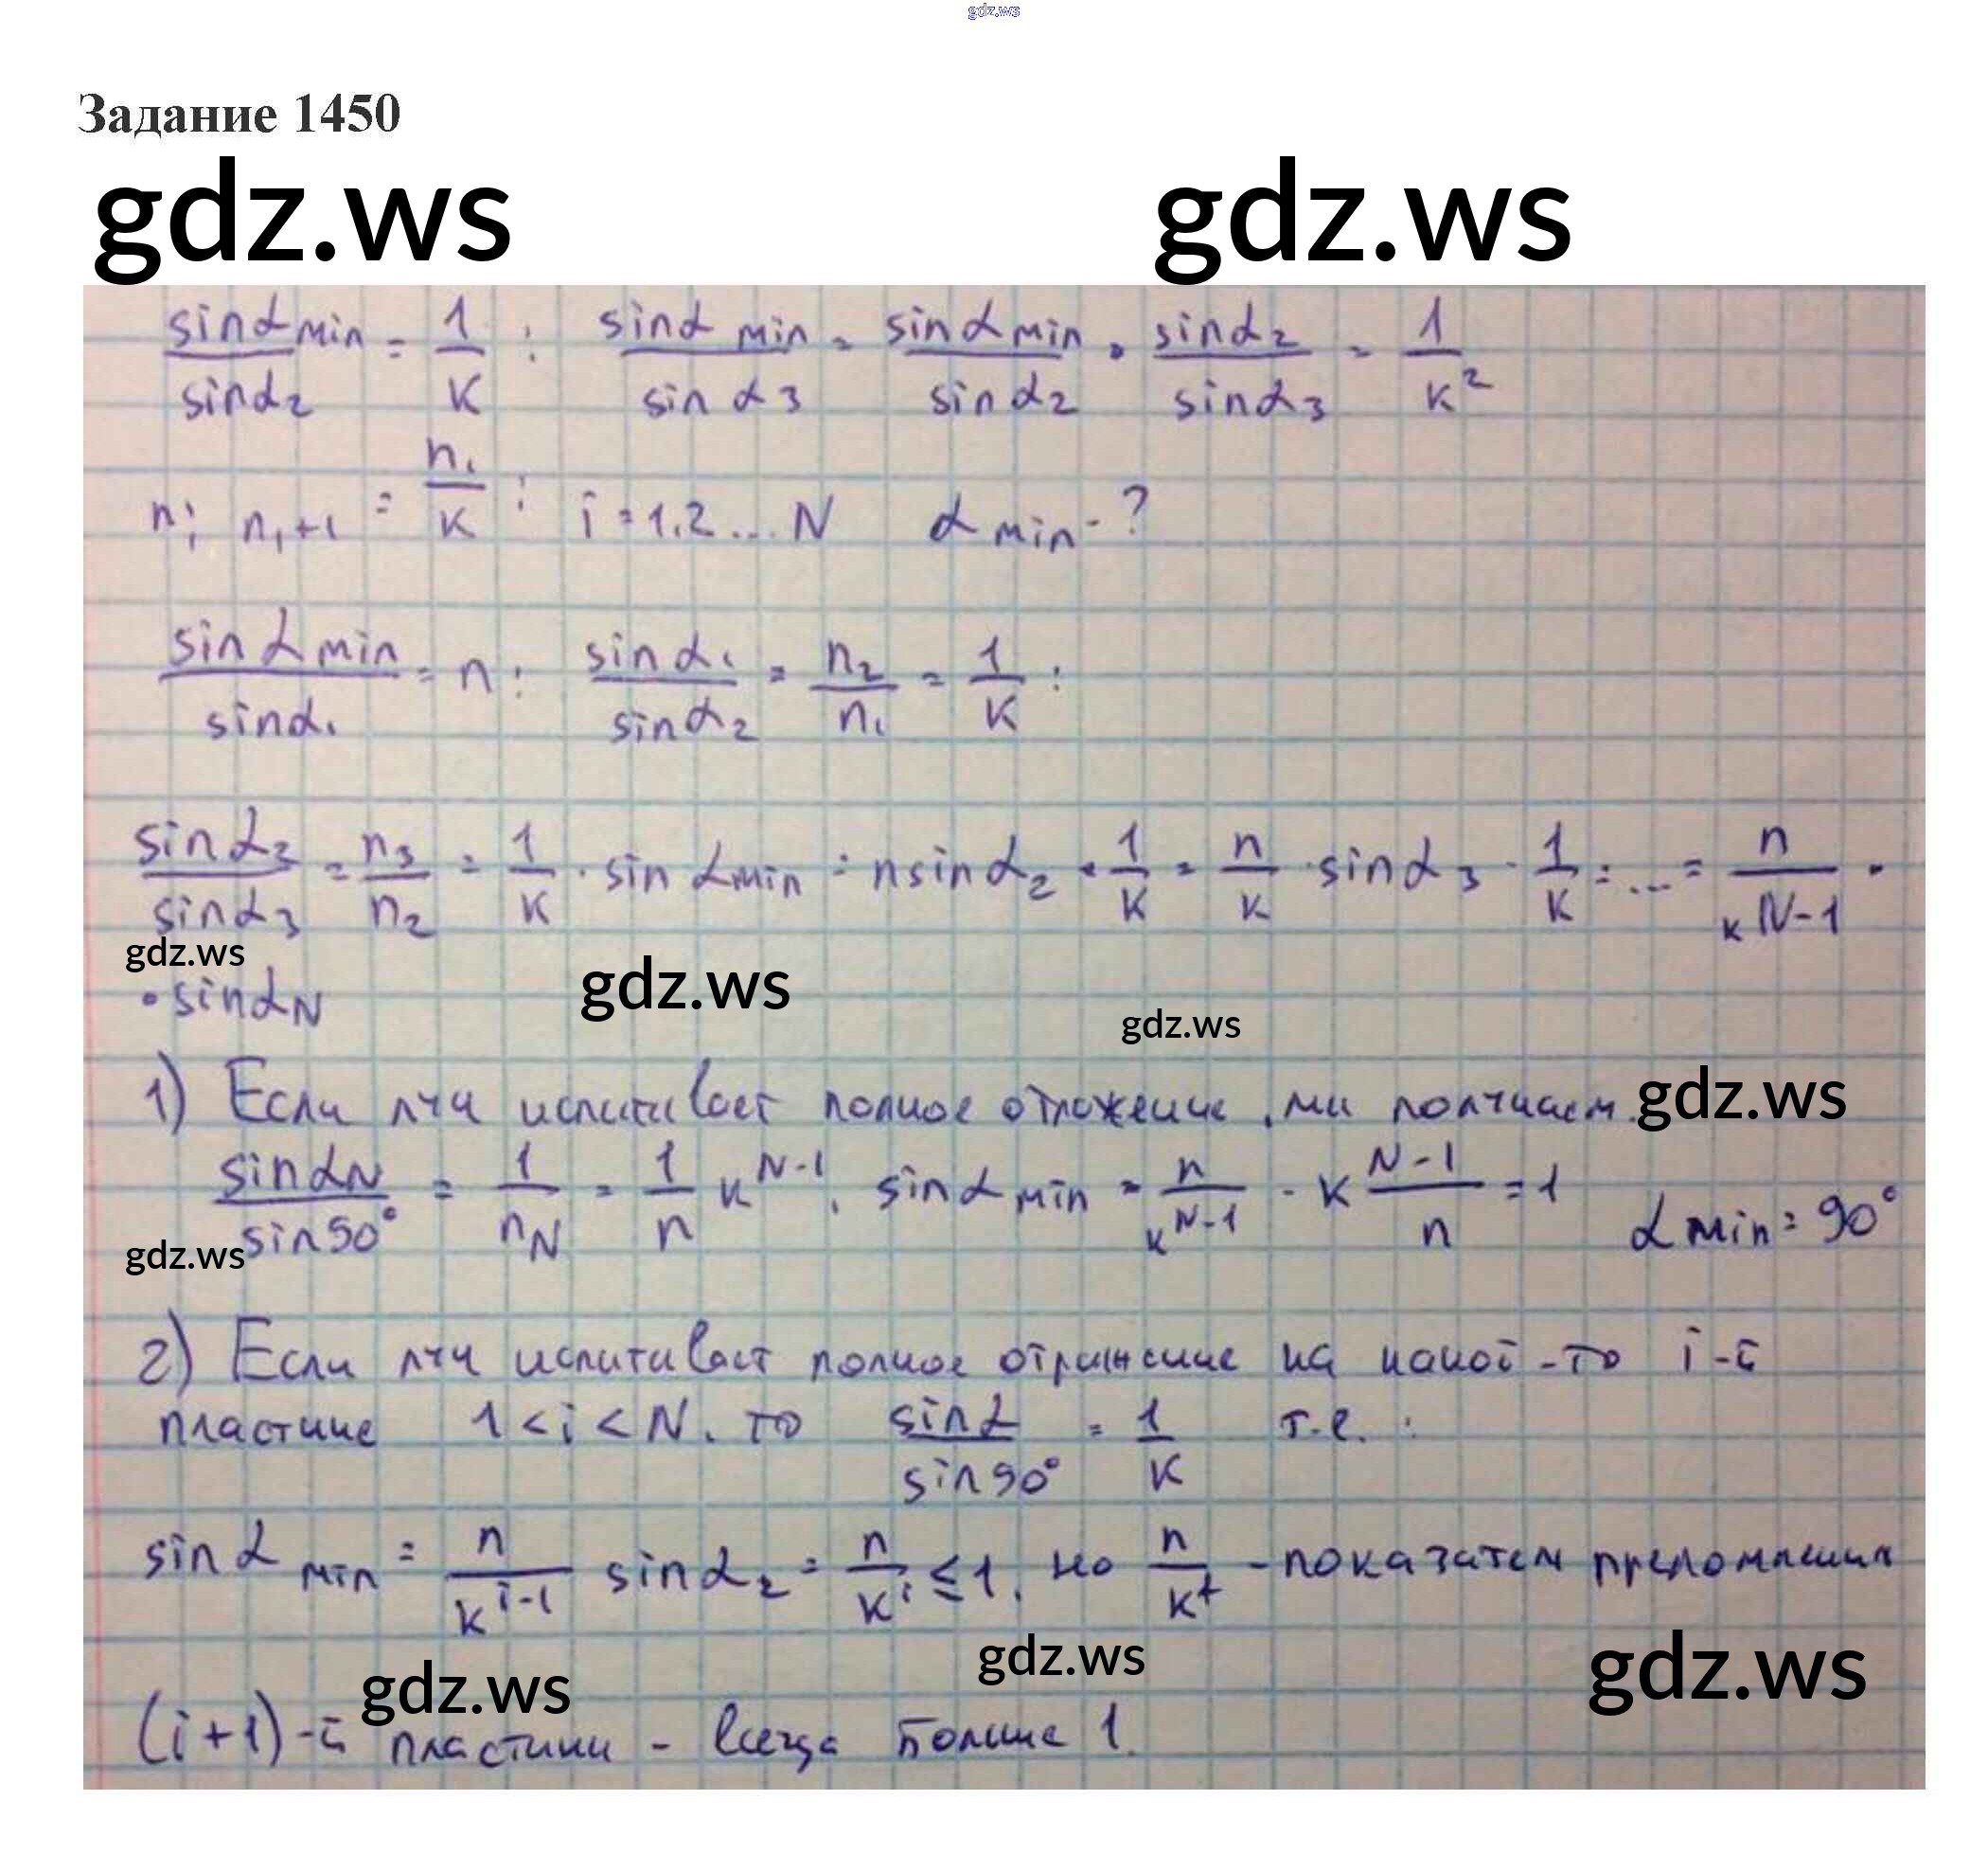 gdz.ws
Задание 1450
gdz.ws gdz.ws
sinα min / sinα2 = 1/k ; sinα min / sin α3 = sinα min / sinα2 · sinα2 / sinα3 = 1/k²
n; n₁+1 = n₁/k ; i = 1,2 ... N α min - ?
sinα min / sinα₁ = n ; sinα₁ / sinα2 = n2/n₁ = 1/k ;
sinα2 / sinα3 = n3/n2 = 1/k · sin α min = n sinα2 · 1/k = n/k · sinα3 · 1/k = ... = n/k^N-1 ·
gdz.ws gdz.ws
· sinαN
gdz.ws
1) Если луч испытывает полное отражение, мы получаем. gdz.ws
sinαN / sin90° = 1/nN = 1/n k^N-1. sinα min = n/k^N-1 - k N-1/n = 1 α min = 90°
gdz.ws
2) Если луч испытывает полное отражение на какой-то i-й
пластине 1 < i < N. то sinα / sin90° = 1/k т.е. :
sinα min = n/k^i-1 sinα2 = n/k^i ≤ 1. но n/k^t - показатель преломления
gdz.ws gdz.ws gdz.ws
(i+1)-й пластины - всегда больше 1.